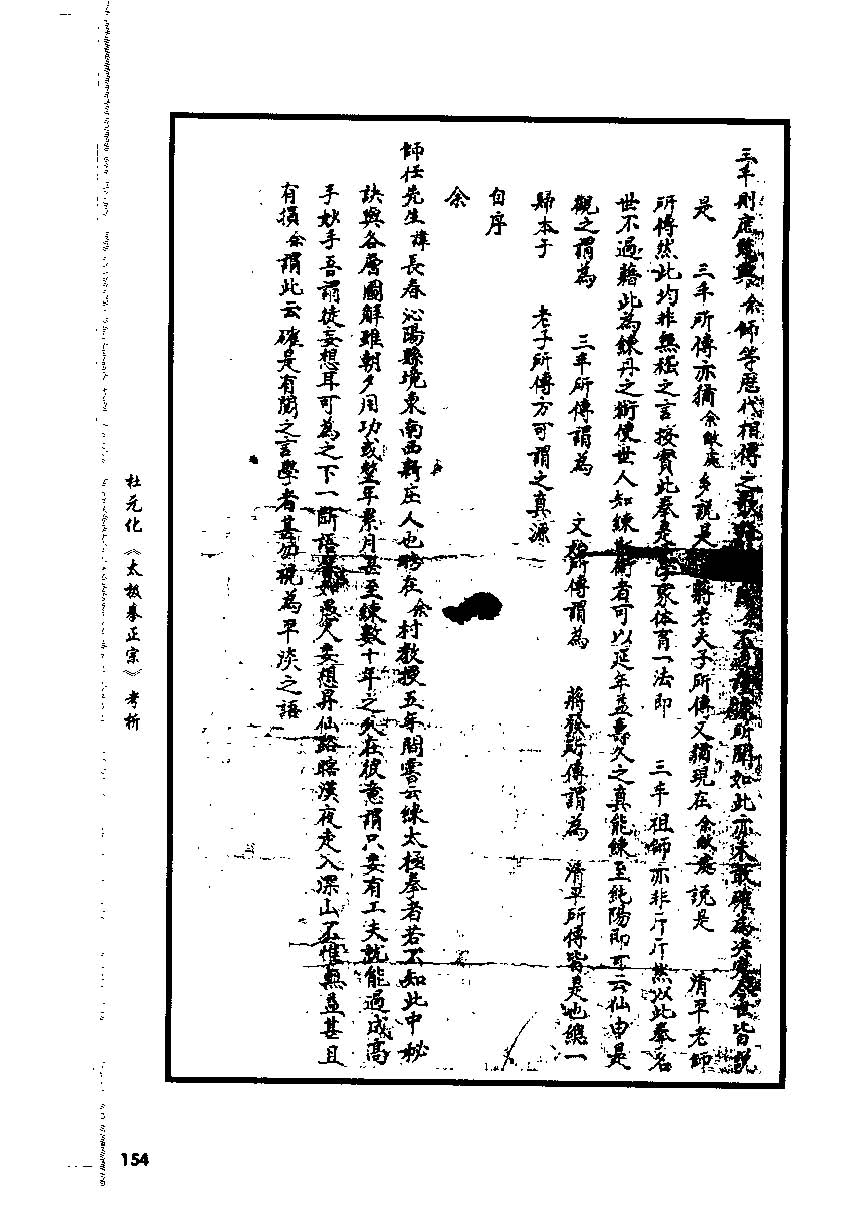 三丰則庶幾與余師等歷代相傳之
不
所聞如此亦未敢確為決
世皆說
是 三丰所傳亦猶余敝處多說是 蔣老夫子所傳又猶現在余敝處說是 清平老師
所傳然此均非無稽之言按實此拳是 家体育一法即 三丰祖師亦非斤斤然以此拳名
世不過藉此為練丹之術使世人知練 術者可以延年益壽久之真能練至純陽即可云仙由是
觀之謂為 三丰所傳謂為 文 所傳謂為 蔣發所傳謂為 清平所傳皆是也總一
歸本于 老子所傳方可謂之真源
自序
余
師任先生諱長春沁陽縣境東南西新庄人也聘在余村教授五年間嘗云練太極拳者若不知此中秘
訣與各層圖解雖朝夕用功或整年累月甚至練數十年之久在彼意謂只要有工夫就能過成高
手妙手吾謂徒妄想耳可為之下一斷語譬如愚人妄想昇仙路瞎漢夜走入深山不惟無益甚且
有損余謂此云確是有閱之言學者甚勿視為平淡之語
杜元化《太极拳正宗》考析
154